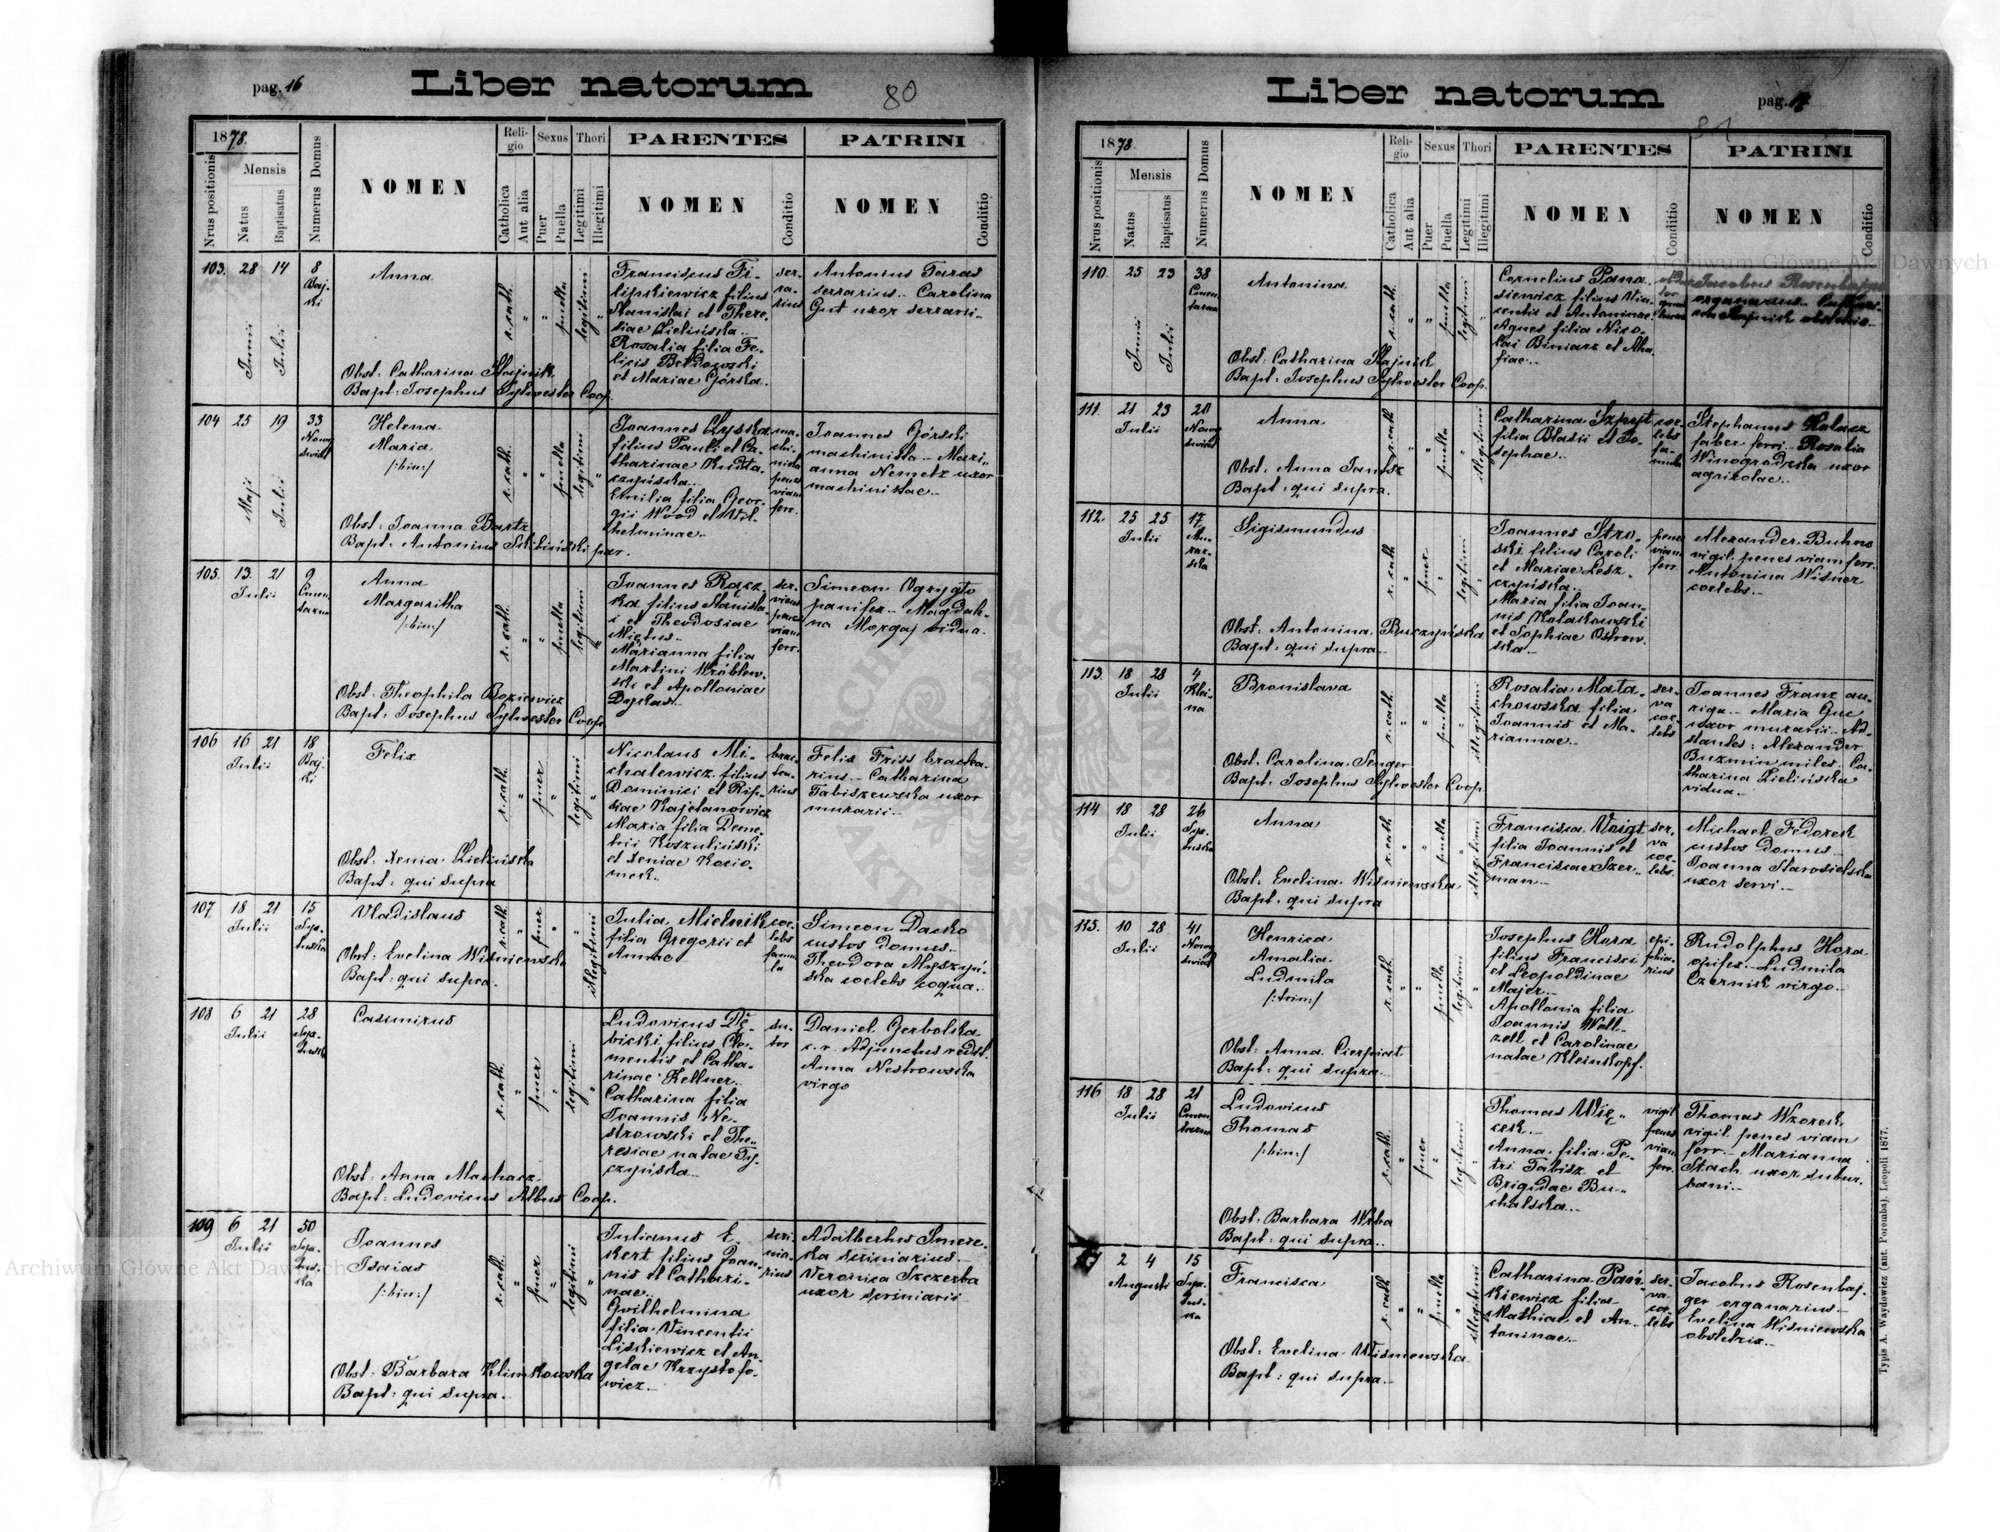 pag. 16
Liber natorum
80
1878.
Nrus positionis
Mensis
Natus
Baptisatus
Numerus Domus
NOMEN
Religio
Catholica
Aut alia
Sexus
Puer
Puella
Thori
Legitimi
Illegitimi
PARENTES
NOMEN
Conditio
PATRINI
NOMEN
Conditio
103. 28 14 8
Junii Julii
Baj-
ki
Anna
Obst: Catharina Stajnik
Bapt: Josephus Sylwester Coop.
r. cath. " " puella legitimi "
Franciscus Fi-
lipkiewicz filius
Stanislai et There-
siae Zielińska
Rosalia filia Fe-
licis
et Mariae Górska..
ser-
ra-
rius
Antonius Taras
serrarius.. Carolina
Gut uxor serrarii-
104 25 19 33
Maji Julii
Nowy
świat
Helena
Maria
/:bin:/
Obst: Joanna Bartz
Bapt: Antonius par.
r. cath. " " puella legitimi "
Joannes Łyska
filius Pauli et Ca-
tharinae Kuzta-
czyńska..
Emilia filia Geor-
gii Wood et Wil-
helminae..
ma-
chi-
nista
penes
viam
ferr.
Joannes Górski
machinista.. Mari-
anna Nemetz uxor
machinistae..
105. 13. 21 9
Julii
Cmen-
tarna
Anna
Margaritha
/:bin:/
Obst: Theophila Boziewicz
Bapt: Josephus Sylwester Coop.
r. cath. " " puella legitimi "
Joannes Rącz-
ka filius Stanisla-
i et Theodosiae
Miętus..
Marianna filia
Martini Wróblew-
ski et Apolloniae
Dyckas..
ser-
viens
penes
viam
ferr.
Simeon Ogrygło
panifex.. Magdale-
na Morgaj vidua.
106 16 21 18
Julii
Baj-
ki
Felix
Obst: Xenia Zielińska
Bapt: qui supra
r. cath. " puer " legitimi "
Nicolaus Mi-
chalewicz filius
Dominici et Rip-
siae Kajetanowicz
Maria filia Deme-
trii Koszuliński
et Xeniae Kocio-
mek..
brac-
tea-
rius
Felix Friss bractea-
rius.. Catharina
Tabiszewska uxor
murarii..
107 18 21 15
Julii
Sap-
tuska
Vladislaus
Obst: Evelina Wiśniewska
Bapt: qui supra.
r. cath. " puer " " illegitimi
Julia Mielnik
filia Gregorii et
Annae
coe-
lebs
famu-
la
Simeon Dacko
custos domus..
Theodora Męszyń-
ska coelebs coqua..
108 6 21 28
Julii
Casimirus
Obst: Anna Machacz
Bapt: Ludovicus Albus Coop.
r. cath. " puer " legitimi "
Ludovicus Dę-
bicki filius Cle-
mentis et Catha-
rinae Kellner..
Catharina filia
Joannis Ne-
strowski et The-
resiae natae Ty-
czyńska..
su-
tor
Daniel Gerbolska
c. r. Adjunctus
Anna Nestrowska
virgo
109 6 21 50
Julii
Joannes
Isaias
/:bin:/
Obst: Barbara Klimkowska
Bapt: qui supra.
r. cath. " puer " legitimi "
Julianus E-
kert filius Joan-
nis et Cathari-
nae..
Gvilhelmina
filia Vincentii
Liskiewicz et An-
gelae Krzysztofo-
wicz..
scri-
nia-
rius
Adalbertus Smere-
ka scriniarius..
Veronica Szczerba
uxor scriniarii..
Liber natorum
pag. 17
81
1878.
Nrus positionis
Mensis
Natus
Baptisatus
Numerus Domus
NOMEN
Religio
Catholica
Aut alia
Sexus
Puer
Puella
Thori
Legitimi
Illegitimi
PARENTES
NOMEN
Conditio
PATRINI
NOMEN
Conditio
110. 25 23 38
Junii Julii
Cmen-
tarna
Antonina
Obst: Catharina Stajnik
Bapt: Josephus Sylwester Coop.
r. cath. " " puella legitimi "
Cornelius Pana-
siewicz filius Vin-
centii et Antoninae
Agnes filia Nico-
lai Biniarz et Aha-
fiae..
Jacobus Rosenbajger
organarius
Stajnik obstetrix..
111. 21 23 20
Julii
Nowy
świat
Anna
Obst. Anna Janusz
Bapt: qui supra.
r. cath. " " puella " illegitimi
Catharina Szpejt
filia Blasii et Jo-
sephae..
coe-
lebs
fa-
mula
Stephanus Kolacz
faber ferri.. Rosalia
Winogradzka uxor
agricolae..
112. 25 25 17
Julii
Sigismundus
Obst: Antonina Buczyńska
Bapt: qui supra..
r. cath. " puer " legitimi "
Joannes Stro-
ski filius Caroli
et Mariae Lesz-
czyńska..
Maria filia Joan-
nis Kolakowski
et Sophiae Ostrow-
ska..
penes
viam
ferr.
Alexander Buhno
vigil penes viam ferr.
Antonina Wisner
coelebs..
113. 18 28 4
Julii
Klei-
na
Bronislava
Obst: Carolina Senger
Bapt: Josephus Sylwester Coop.
r. cath. " " puella " illegitimi
Rosalia Mala-
chowska filia
Joannis et Ma-
riannae..
ser-
va
coe-
lebs
Joannes Franz au-
riga.. Maria Guc
uxor murarii.. Ad-
stantes: Alexander
Buzmin miles. Ca-
tharina Zielińska
vidua..
114 18 28 26
Julii
Sap-
tuska
Anna
Obst. Evelina Wiśniewska
Bapt: qui supra
r. cath. " " puella " illegitimi
Francisca Voigt
filia Joannis et
Franciscae Szer-
man..
ser-
va
coe-
lebs.
Michael Fedorek
custos domus..
Joanna Starosielska
uxor servi..
115. 10 28 41
Julii
Nowy
świat
Henrica
Amalia
Ludmila
/:trim:/
Obst: Anna Cierpiat
Bapt: qui supra..
r. cath. " " puella legitimi "
Josephus Hora
filius Francisci
et Leopoldinae
Majer..
Apollonia filia
Joannis Woll-
zell et Carolinae
natae Kleinkopf.
ephi-
pia-
rius
Rudolphus Hora
opifex.. Ludmila
Czernik virgo..
116 18 28 21
Julii
Cmen-
tarna
Ludovicus
Thomas
/:bim:/
Obst: Barbara Wrba
Bapt: qui supra..
r. cath. " puer " legitimi "
Thomas Wię-
cek..
Anna filia Pe-
tri Tabisz et
Brigidae Bu-
chalska..
vigil
penes
viam
ferr.
Thomas Wzorek
vigil penes viam
ferr.. Marianna
Stach uxor subur-
bani..
117 2 4 15
Augusti
Francisca
Obst: Evelina Wiśniewska
Bapt: qui supra..
r. cath. " " puella " illegitimi
Catharina Pań-
kiewicz filia
Mathiae et An-
toninae..
ser-
va
coe-
lebs
Jacobus Rosenbaj-
ger organarius..
Evelina Wiśniewska
obstetrix..
Typis A. Waydowicz (ant. Poremba). Leopoli 1877.
Archiwum Główne Akt Dawnych
Archiwum Główne Akt Dawnych
ARCHIWUM GŁÓWNE AKT DAWNYCH